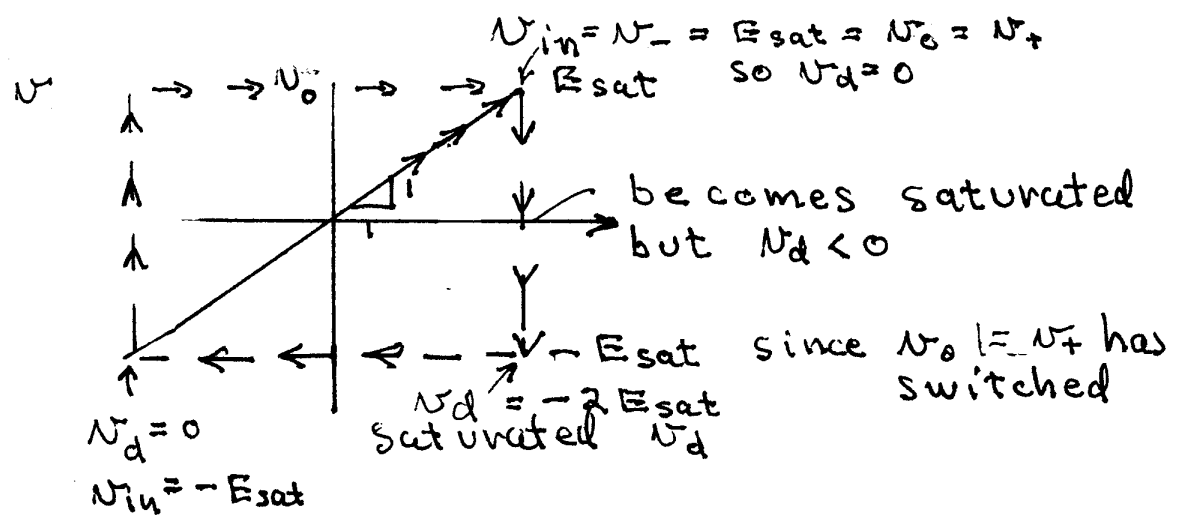 v_in = v_- = E_sat = v_o = v_+
E_sat so v_d = 0
v v_o
1
1
becomes saturated
but v_d < 0
- E_sat since v_o |= v_+ has
switched
v_d = -2 E_sat
saturated v_d
v_d = 0
v_in = - E_sat